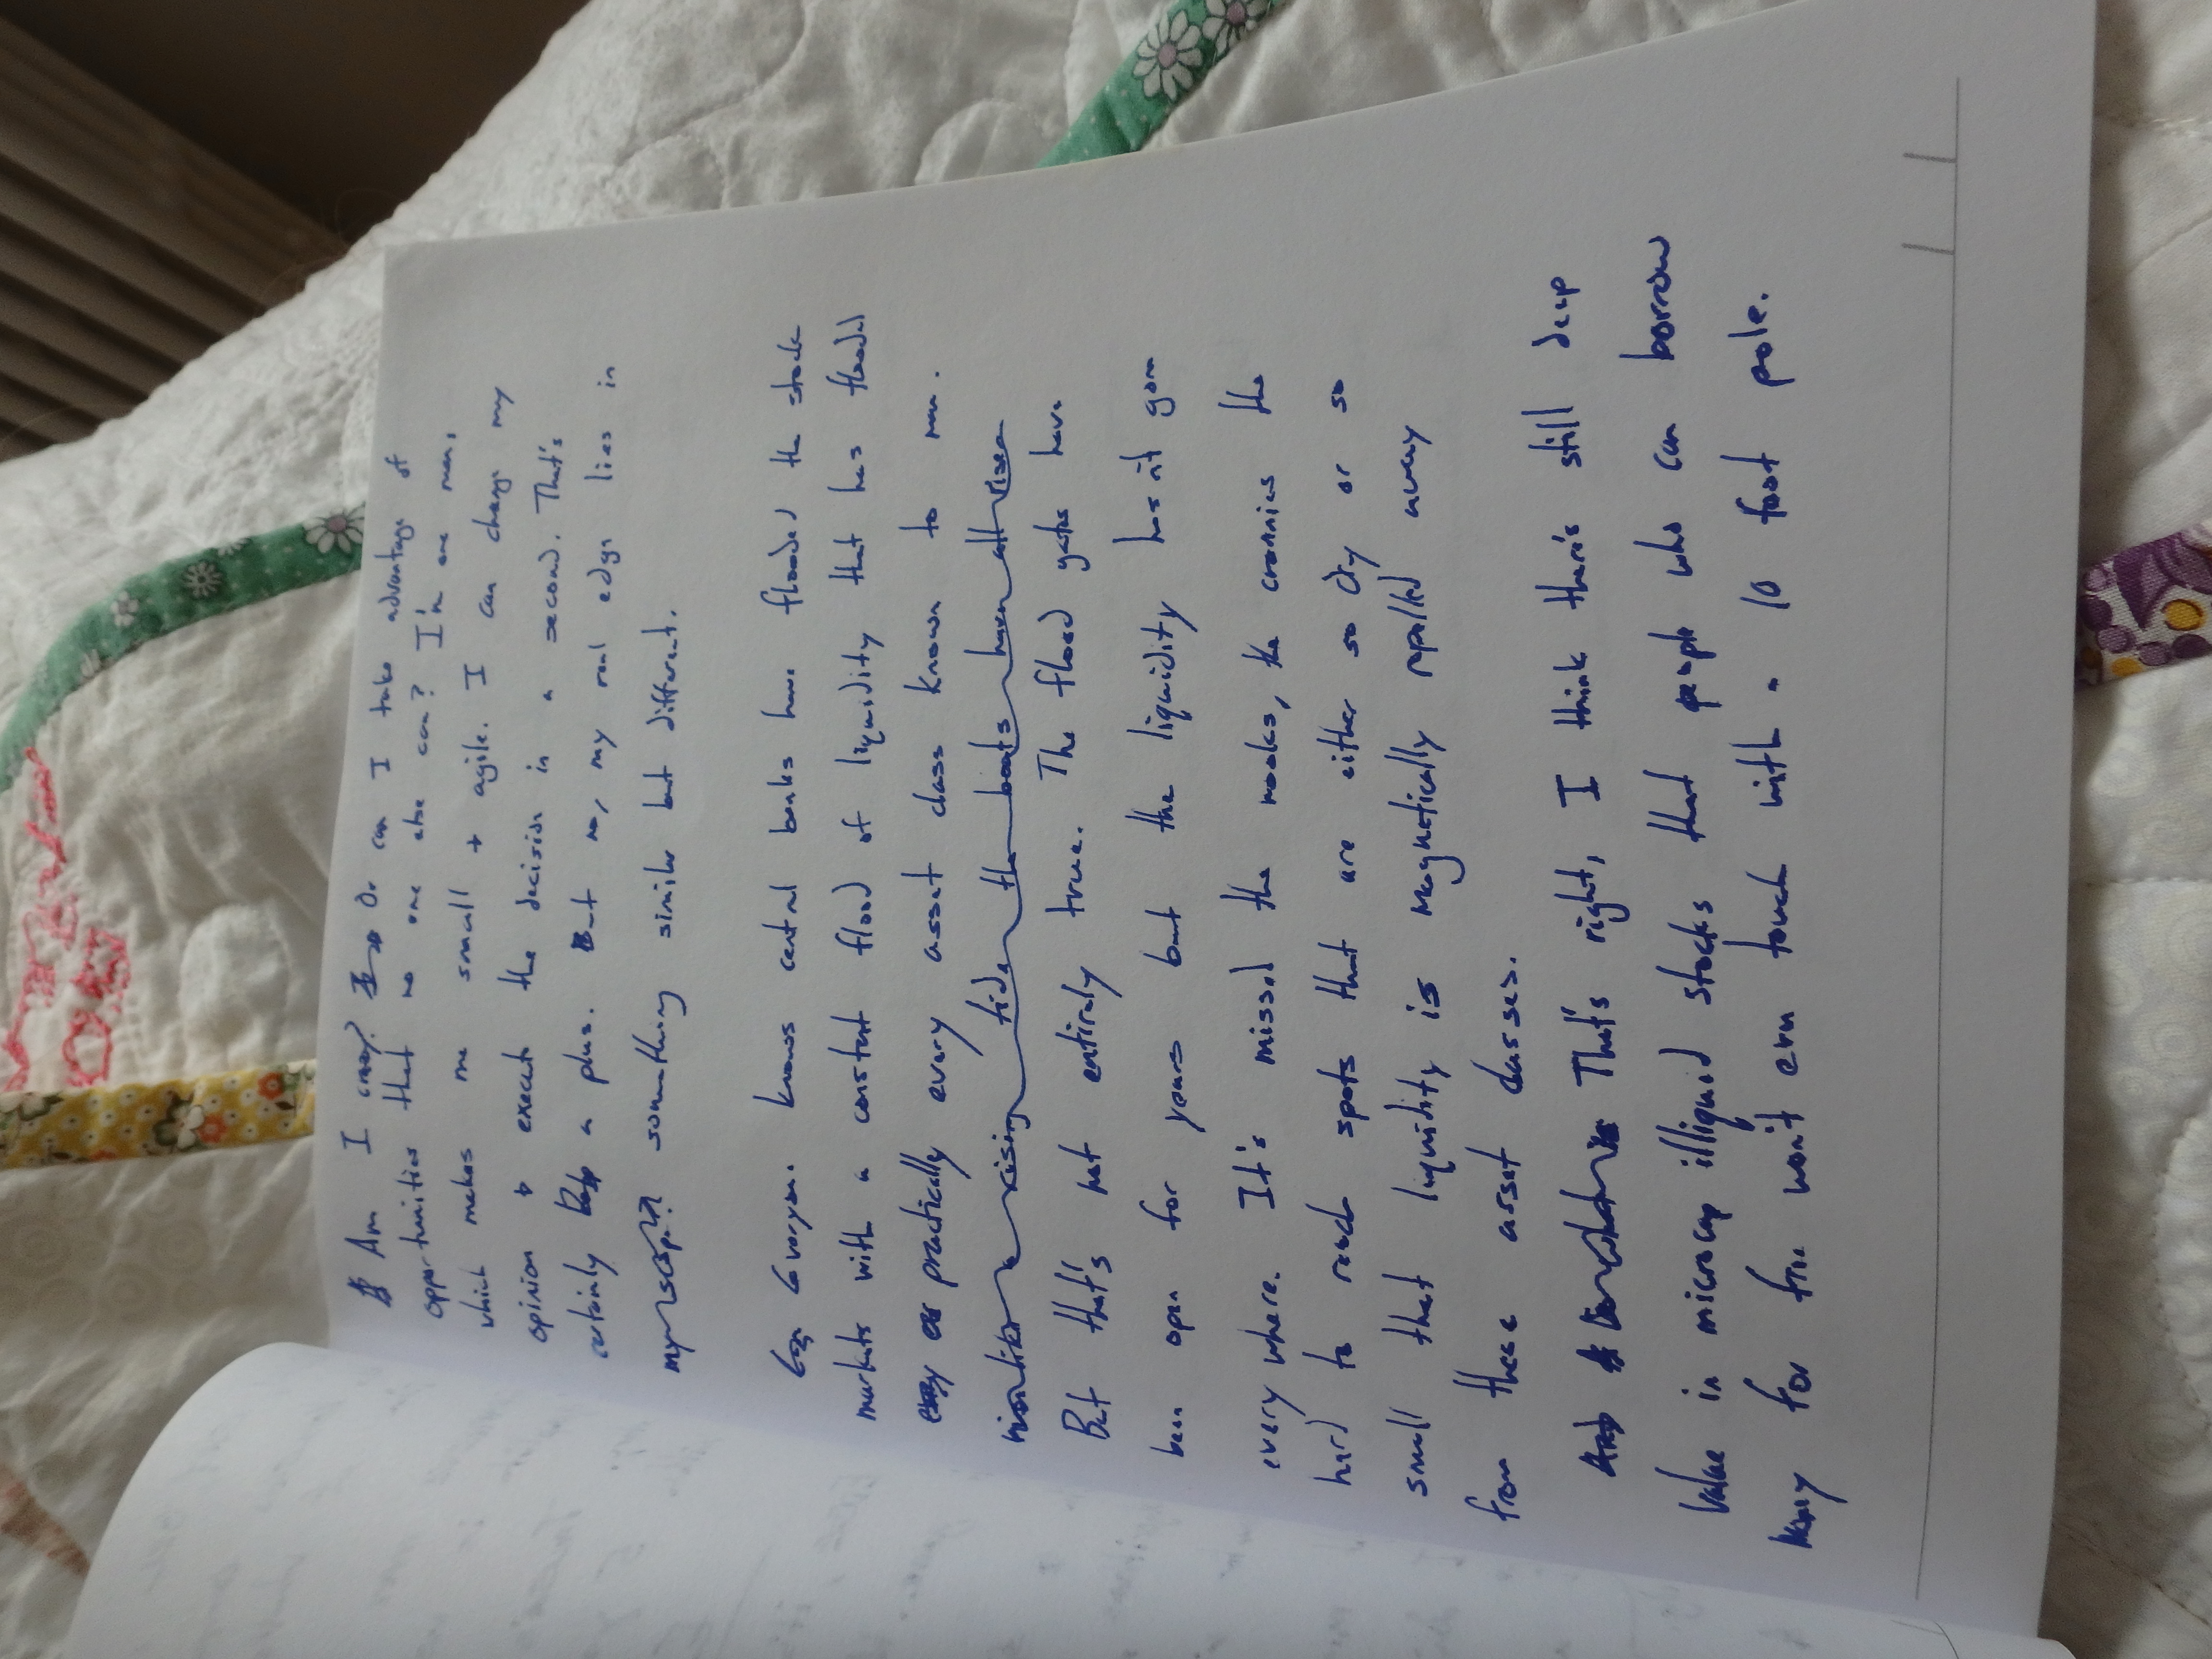 Am I crazy? Or can I take advantage of
opportunities that no one else can? I'm one man,
which makes me small + agile. I can change my
opinion + execute the decision in a second. That's
certainly a plus. But no, my real edge lies in
something similar but different.
Everyone knows central banks have flooded the stock
markets with a constant flood of liquidity that has flooded
practically every asset class known to man.
a rising tide the boats have all risen
But that's not entirely true. The flood gates have
been open for years but the liquidity hasn't gone
every where. It's missed the nooks, the crannies the
hard to reach spots that are either so dry or so
small that liquidity is magnetically repelled away
from these asset classes.
And That's right, I think there's still deep
value in microcap illiquid stocks that people who can borrow
money for free won't even touch with a 10 foot pole.